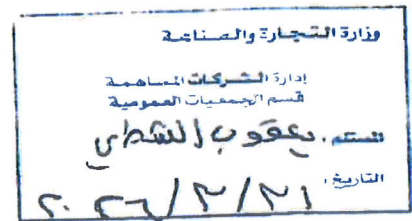 وزارة التجارة والصناعة
إدارة الشركات المساهمة
قسم الجمعيات العمومية
المستلم: يعقوب الشطي
التاريخ: ٢٠٢٦/٣/٣١